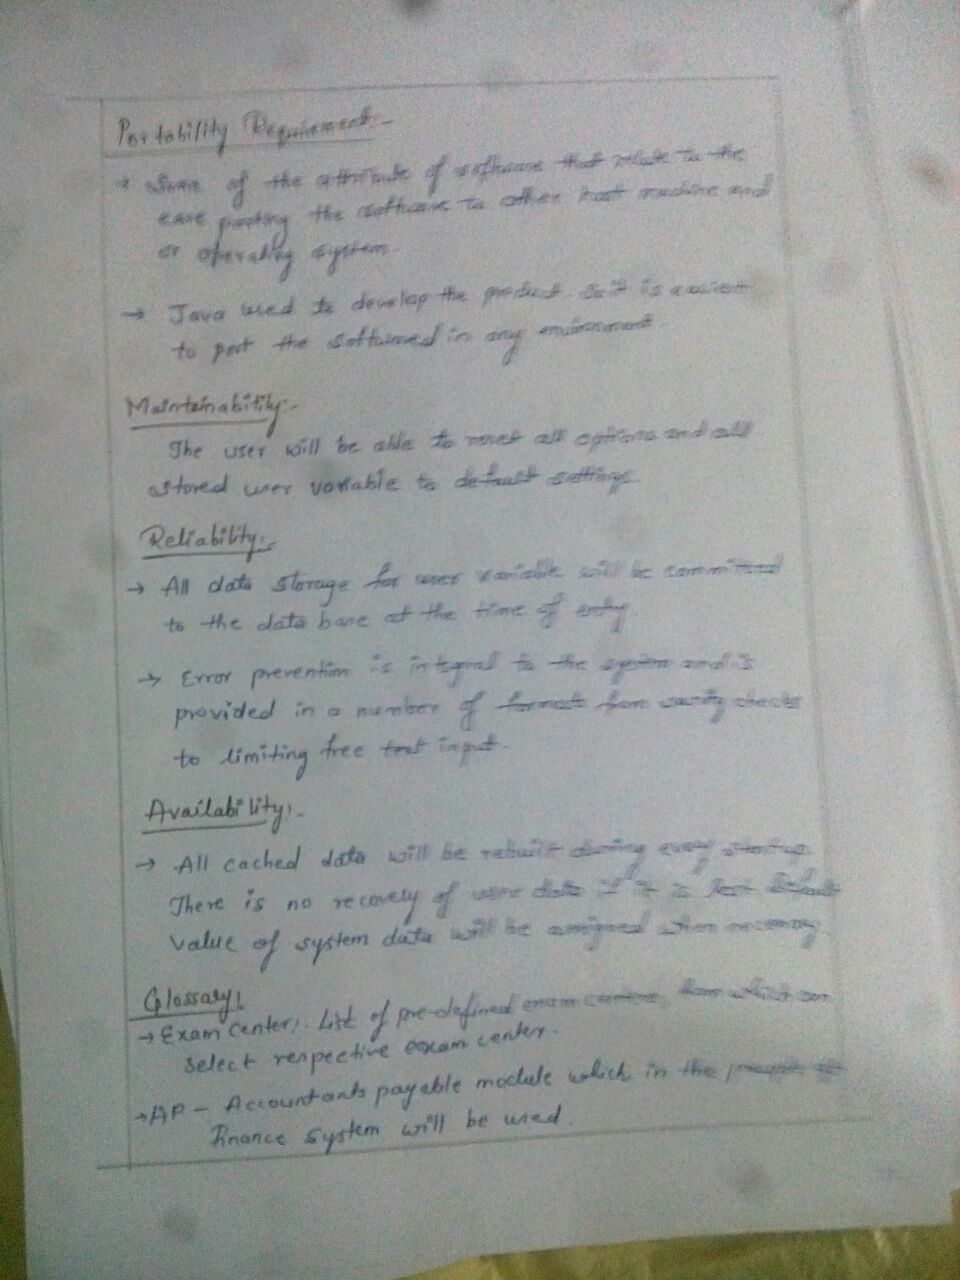 Portability Requirement:-
→ Some of the attribute of software that relate to the
ease porting the software to other host machine and
or operating system.
→ Java used to develop the product. So it is easiest
to port the software in any environment.
Maintainability:-
The user will be able to reset all options and all
stored user variable to default settings.
Reliability:-
→ All data storage for user variable will be committed
to the data base at the time of entry.
→ Error prevention is integral to the system and is
provided in a number of formats from sanity checks
to limiting free text input.
Availability:-
→ All cached data will be rebuilt during every startup.
There is no recovely of user data if it is lost. Default
value of system data will be assigned when necessary.
Glossary:
→ Exam Center:- List of pre-defined exam centers, from which can
select respective exam center.
→ AP - Accountants payable module which in the
finance system will be used.